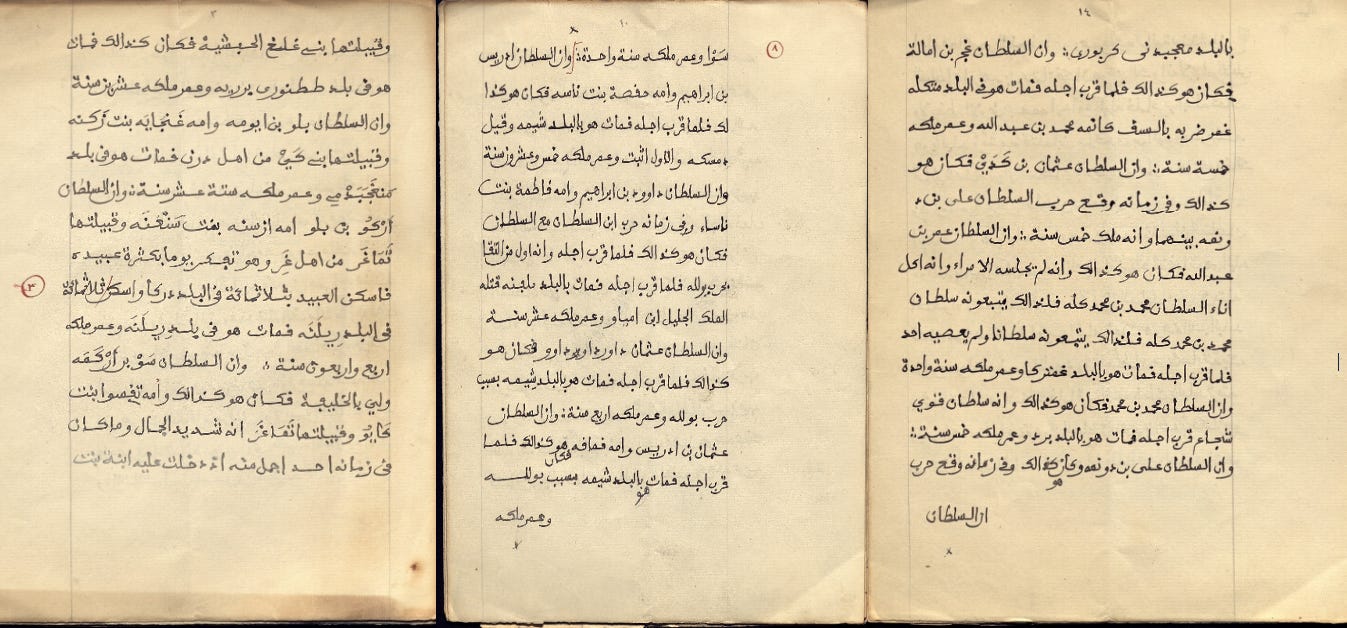 ٣
وقبيلتها بني غلغ الحبشية فكان كذالك فمات
هو في بلد ططنوري برريه وعمر ملكه عشرين سنة
وان السلطان بلو بن ايومه وامه غنجايه بنت زكنه
وقبيلتها بني كي من اهل درن فمات هو في بلد
وعمر ملكه ستة عشر سنة ؞ وان السلطان
اركو بن بلو امه ازسنه بنت سنغنه وقبيلتها
تماغر من اهل غر وهو تفكر يوما بكثرة عبيده
فاسكن العبيد بثلاثمائة في البلد دركا واسكن ثلاثمائة
٣
في البلد زيلنه فمات هو في بلد زيلنه وعمر ملكه
اربع واربعون سنة ؞ وان السلطان سو بن اركمه
ولي بالخليفة فكان هو كذالك وامه تفسوا بنت
كايو وقبيلتها تماغر انه شديد الجمال وما كان
في زمانه احد اجمل منه اذ دخلت عليه ابنة بنت
١٠
سوا وعمر ملكه سنة واحدة ؞ وان السلطان ادريس
٨
بن ابراهيم وامه حفصة بنت ناسه فكان هو كذا
لك فلما قرب اجله فمات هو بالبلد شيمه وقيل
دمسكه والاول اثبت وعمر ملكه خمس وعشرون سنة
وان السلطان داوود بن ابراهيم وامه فاطمة بنت
ناساء وفي زمانه حرب ابن السلطان مع السلطان
فكان هو كذالك فلما قرب اجله وانه اول من التقا
بحرب بولله فلما قرب اجله فمات بالبلد ملينه قتله
الملك الجليل ابن امياو وعمر ملكه عشر سنة
وان السلطان عثمان فكان هو
كذالك فلما قرب اجله فمات هو بالبلد شيمه بسبب
حرب بولله وعمر ملكه اربع سنة ؞ وان السلطان
عثمان بن ادريس وامه فمافه فكان هو كذالك فلما
قرب اجله فمات هو بالبلد شيمه بسبب بولله
وعمر ملكه
١٤
بالبلد معجبد نى كربورى ؞ وان السلطان غجم بن امالة
فكان هو كذالك فلما قرب اجله فمات هو في البلد متكله
غمر ضربه بالسف كاتمه محمد بن عبد الله وعمر ملكه
خمسة سنة ؞ وان السلطان عثمان بن كدي فكان هو
كذالك وفي زمانه وقع حرب السلطان على بن د
ونمه بينهما وانه ملك خمس سنة ؞ وان السلطان عمر بن
عبد الله فكان هو كذالك وانه لم يجلسه الامراء وانه اكل
اناء السلطان محمد بن محمد كله فلذالك يتبعونه سلطان
محمد بن محمد كله فلذالك يتبعونه سلطانا ولم يعصيه احد
فلما قرب اجله فمات هو بالبلد غمتركا وعمر ملكه سنة واحدة
وان السلطان محمد بن محمد فكان هو كذالك وانه سلطان قوي
شجاع قرب اجله فمات هو بالبلد برد وعمر ملكه خمس سنة ؞
وان السلطان على بن دونمه وكان هو كذالك وفي زمانه وقع حرب
ان السلطان